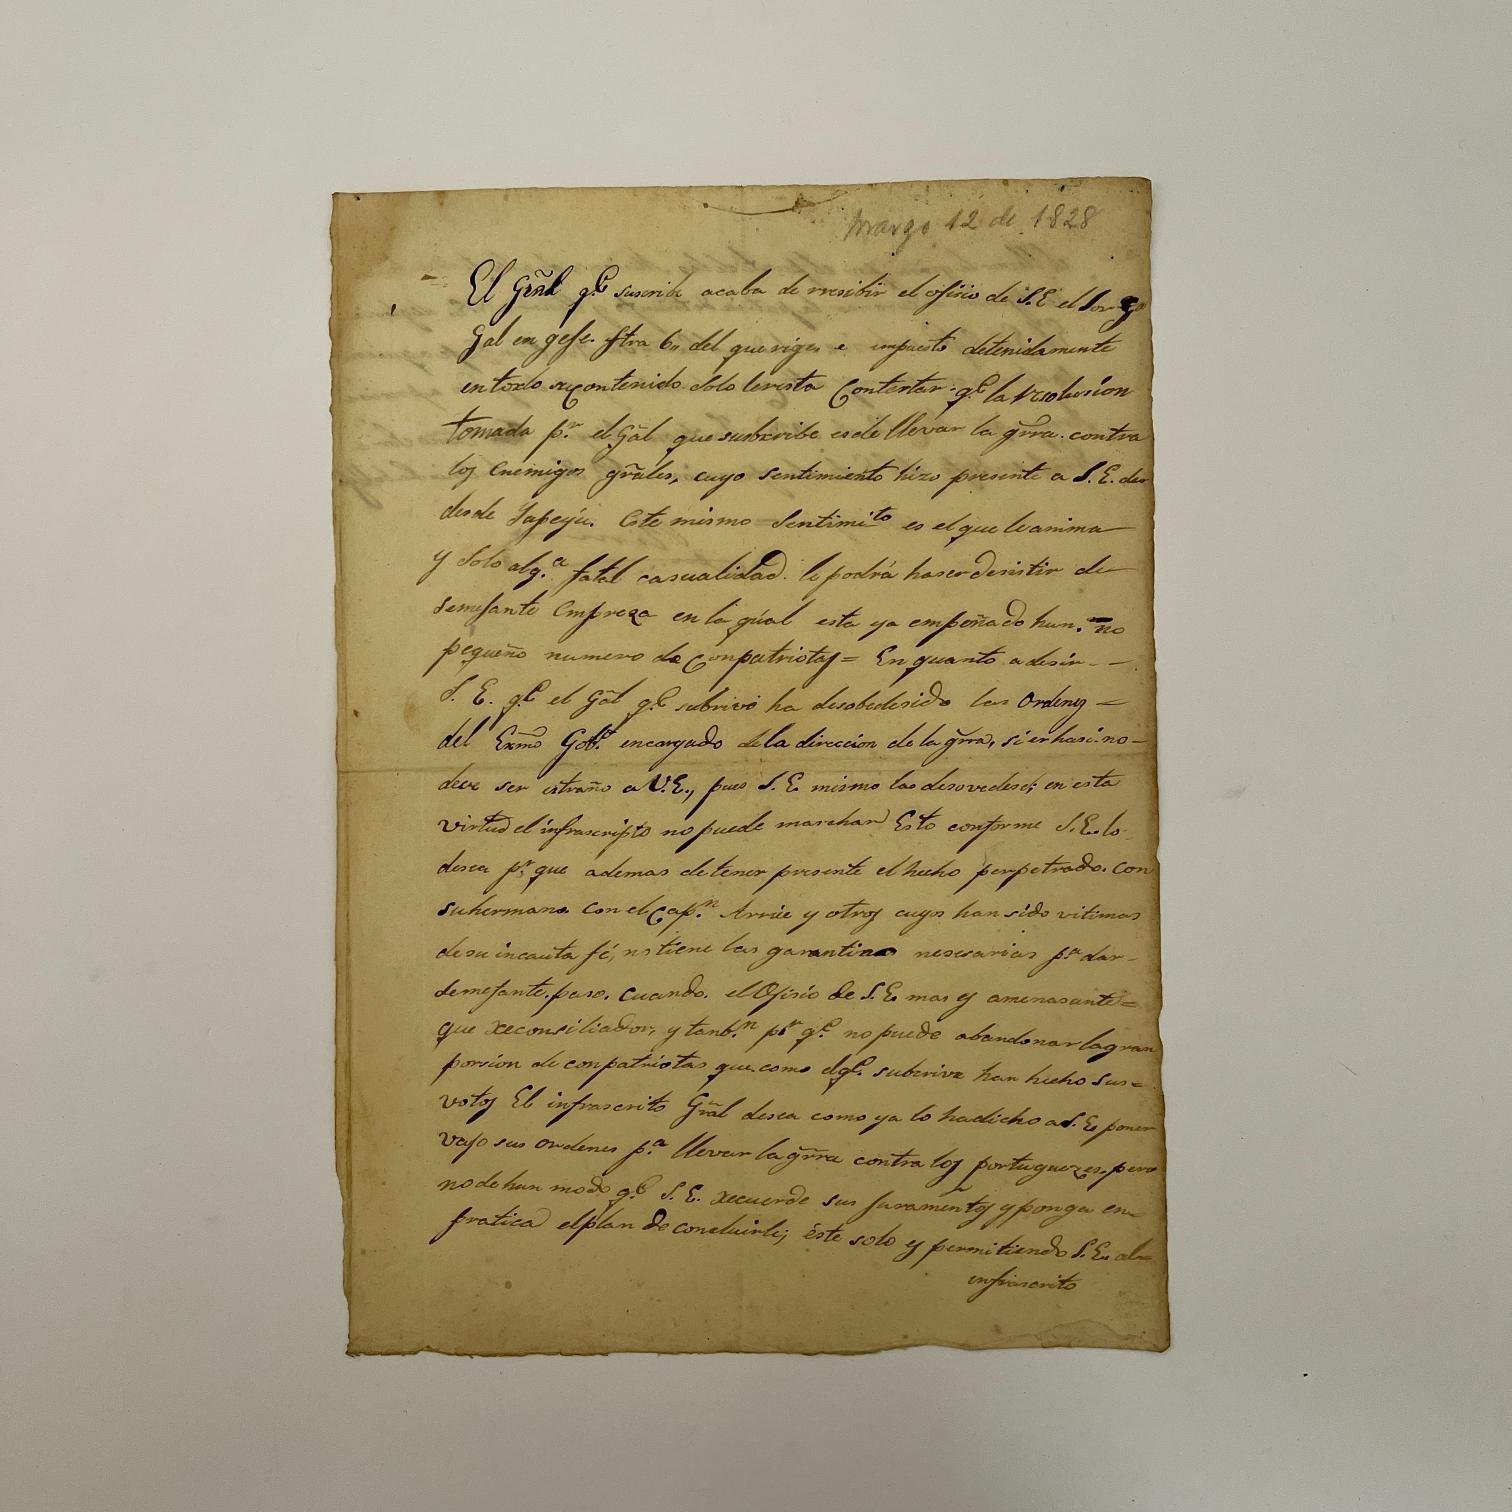 Marzo 12 de 1828
El Grãl q.e suscribe acaba de rresibir el ofisio de S.E. el Sor
Gal en gefe. ftra 6,, del que rige, e impuesto detenidamente
en todo su contenido solo le resta Contestar. q.e la resolusion
tomada p.r el Gãl que subscribe es de llevar la grr̃a. contra
los Enemigos grãles, cuyo sentimiento hizo presente a S.E. des
desde Yapeyú. Este mismo Sentimi.to es el que le anima
y Solo alg.a fatal casualidad. le podrá haser desistir de
semejante Empreza en la qúal esta ya empeñado hun. no
pequeño numero de Conpatriotas = En quanto a desir - -
S. E. q.e el Gãl q.e subrivé ha desobedesido las Ordenes =
del Exmõ Gob.o encargado de la direccion de la grr̃a, si es hasi no -
deve ser estraño a V.E., pues S. E. mismo las desovedesé; en esta
virtud el infrascripto no puede marchar Esto conforme S.E. lo
desea p.r que ademas de tener presente el hecho perpetrado. con
su hermano con el Cap.n Arrúe y otros cuyos han sido vitimas
de su incauta fé, no tiene las garantias nesesarias p.a dar -
semejante. paso. cuando. el Ofisio de S.E. mas es amenasante =
que reconsiliador, y tanb.n p.r q.e no puede abandonar la gran
porsion de conpatriotas que como el q.e subcrive han hecho sus =
votos El infrascrito Grãl desea como ya lo ha dicho a S.E. poner
vajo sus ordenes p.a llevar la grr̃a contra los portuguezes. pero
no de hun modo q.e S. E. recuerde sus juramẽntos y ponga en =
pratica el plan de concluirle; éste solo y permitiendo S.E. al =
infrascrito